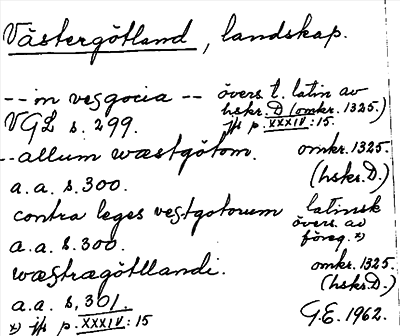 Västergötland, landskap.
-- in vesgocia -- övers. t. latin av
hskr. D (omkr. 1325.)
VGL s. 299. jfr p. XXXIV:15.
--allum wæstgötom. omkr. 1325.
a.a. s. 300. (hskr. D.)
contra leges vestgotorum latinsk
övers. av
a.a. s. 300. föreg. x)
wæstrægötllandi. omkr. 1325.
(hskr. D.)
a.a. s. 301.
x) jfr p. XXXIV:15 G.E. 1962.